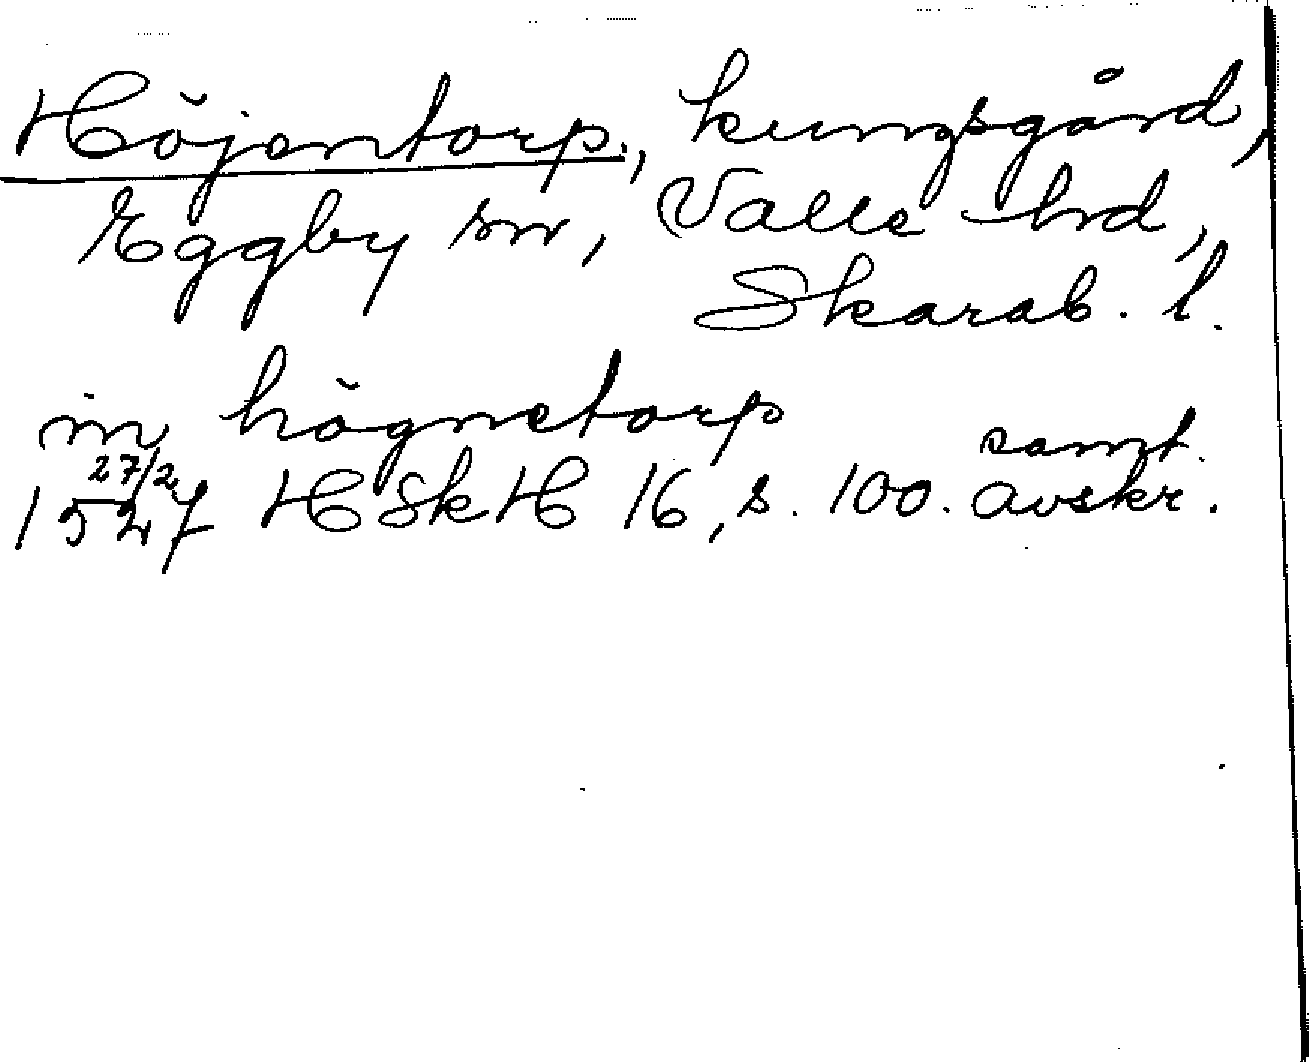 Höjentorp., kungsgård,
Eggby sn, Valle hd,
Skarab. l.
in högnetorp
27/2 samt.
1527 HSkH 16, s. 100. avskr.